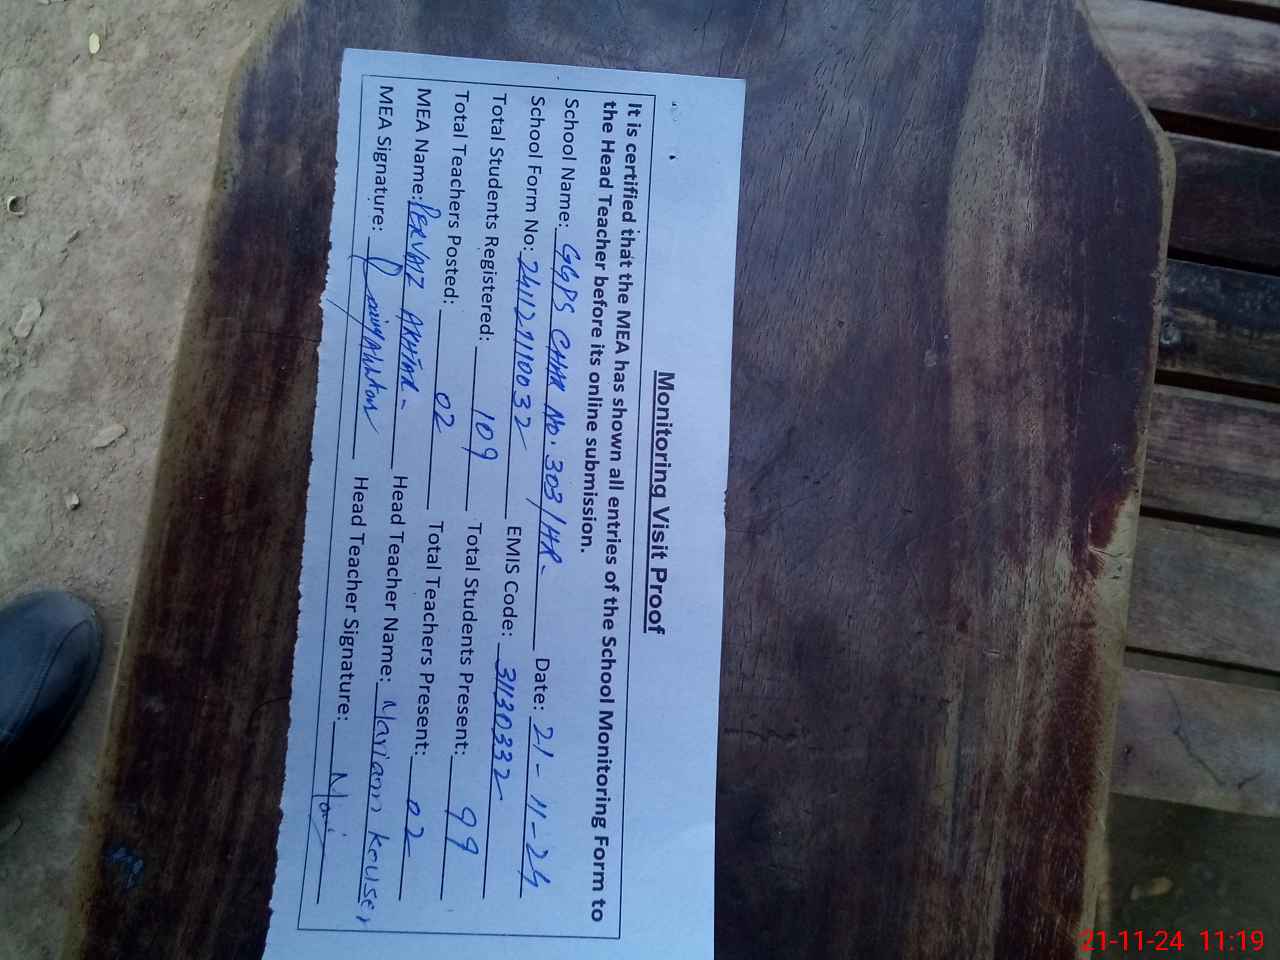 Monitoring Visit Proof
It is certified that the MEA has shown all entries of the School Monitoring Form to
the Head Teacher before its online submission.
School Name: GGPS CHAK No. 303/HR- Date: 21-11-24
School Form No: 241121110032 EMIS Code: 31130332
Total Students Registered: 109 Total Students Present: 99
Total Teachers Posted: 02 Total Teachers Present: 02
MEA Name: PERVAIZ AKHTAR- Head Teacher Name: Mariam keuser
MEA Signature: Head Teacher Signature:
21-11-24 11:19